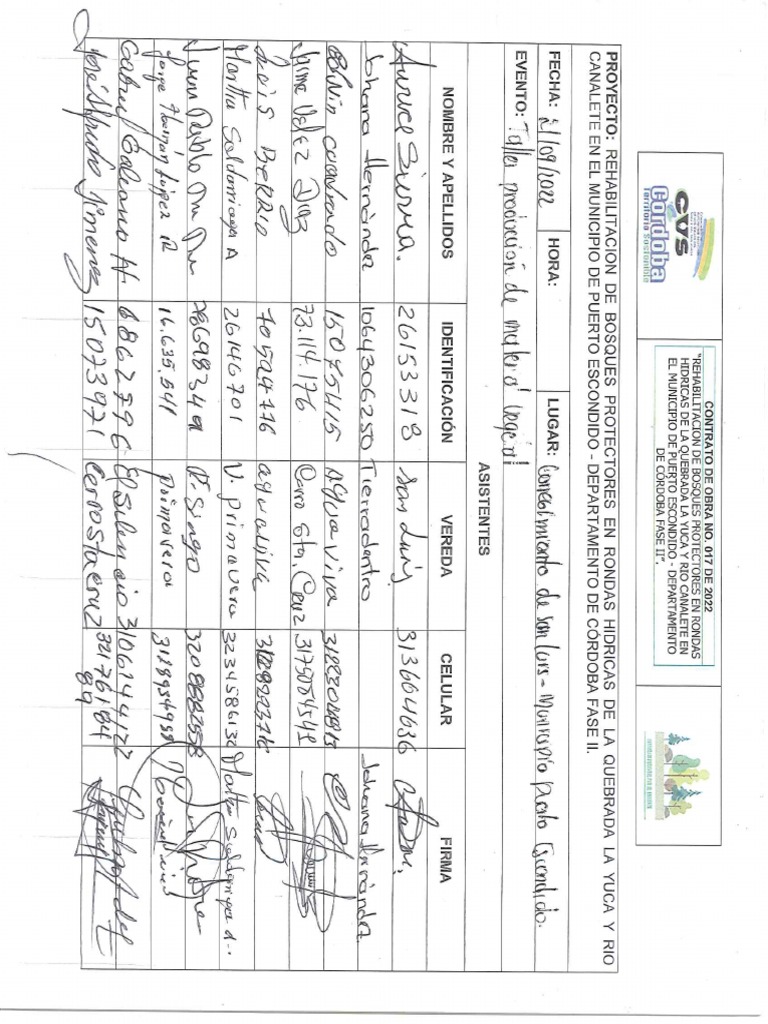 CVS
Córdoba
Territorio Sostenible
CONTRATO DE OBRA NO. 017 DE 2022
"REHABILITACION DE BOSQUES PROTECTORES EN RONDAS
HIDRICAS DE LA QUEBRADA LA YUCA Y RIO CANALETE EN
EL MUNICIPIO DE PUERTO ESCONDIDO - DEPARTAMENTO
DE CÓRDOBA FASE II".
PROYECTO: REHABILITACION DE BOSQUES PROTECTORES EN RONDAS HIDRICAS DE LA QUEBRADA LA YUCA Y RIO
CANALETE EN EL MUNICIPIO DE PUERTO ESCONDIDO - DEPARTAMENTO DE CÓRDOBA FASE II.
FECHA: 21/09/2022 HORA: LUGAR: Corregimiento de San Luis - Municipio Puerto Escondido.
EVENTO: Taller producción de material Vegetal
ASISTENTES
NOMBRE Y APELLIDOS IDENTIFICACIÓN VEREDA CELULAR FIRMA
Sierra. 26153318 San Luis 313604636
Johana Hernández 1064306250 Tierradentro Johana Hernández
cuadrado 15075415 Agua Viva
Jaime Velez Diaz 73.114.176 Cerro Sta. Cruz 3175084548
Luis BERRIO 70524776 agua viva
Martha Saldarriaga A 26146701 V. primavera 3234586132 Martha Saldarriaga A.
Juan Pablo
Jorge Hernán López R 16.635.541 primavera 3128954958
Gabriel Galeano H. 6862796 El Silencio 3106144122
José Alfredo Jimenez 15073971 Cerro Sta Cruz 3217618489